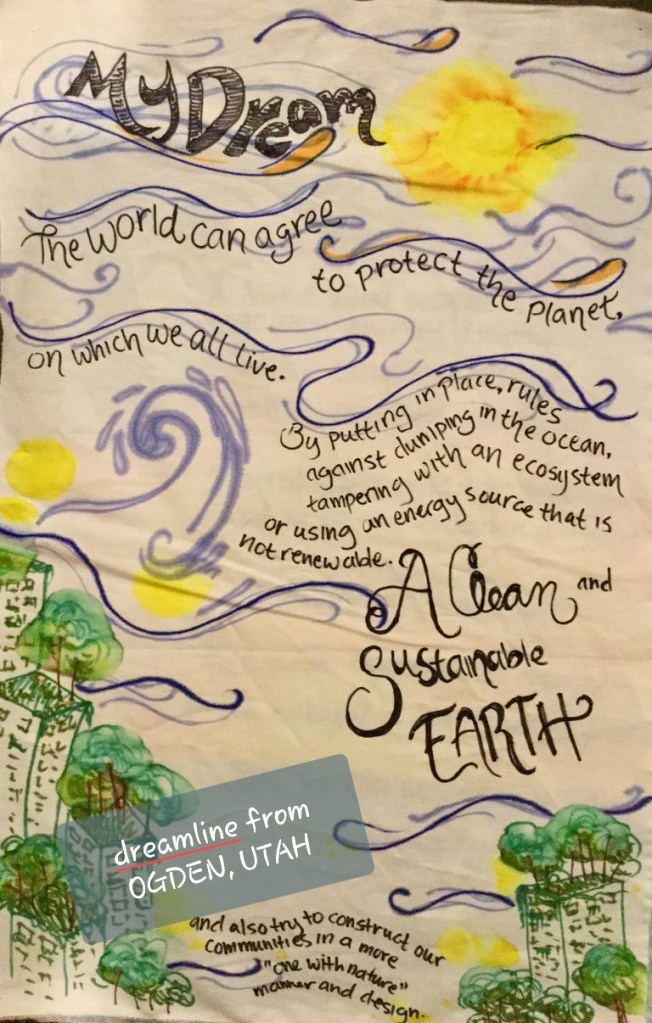 My Dream
The world can agree
to protect the planet,
on which we all live.
By putting in place, rules
against dumping in the ocean,
tampering with an ecosystem
or using an energy source that is
not renewable.
A Clean and
Sustainable
EARTH
dreamline from
OGDEN, UTAH
and also try to construct our
communities in a more
"one with nature"
manner and design.